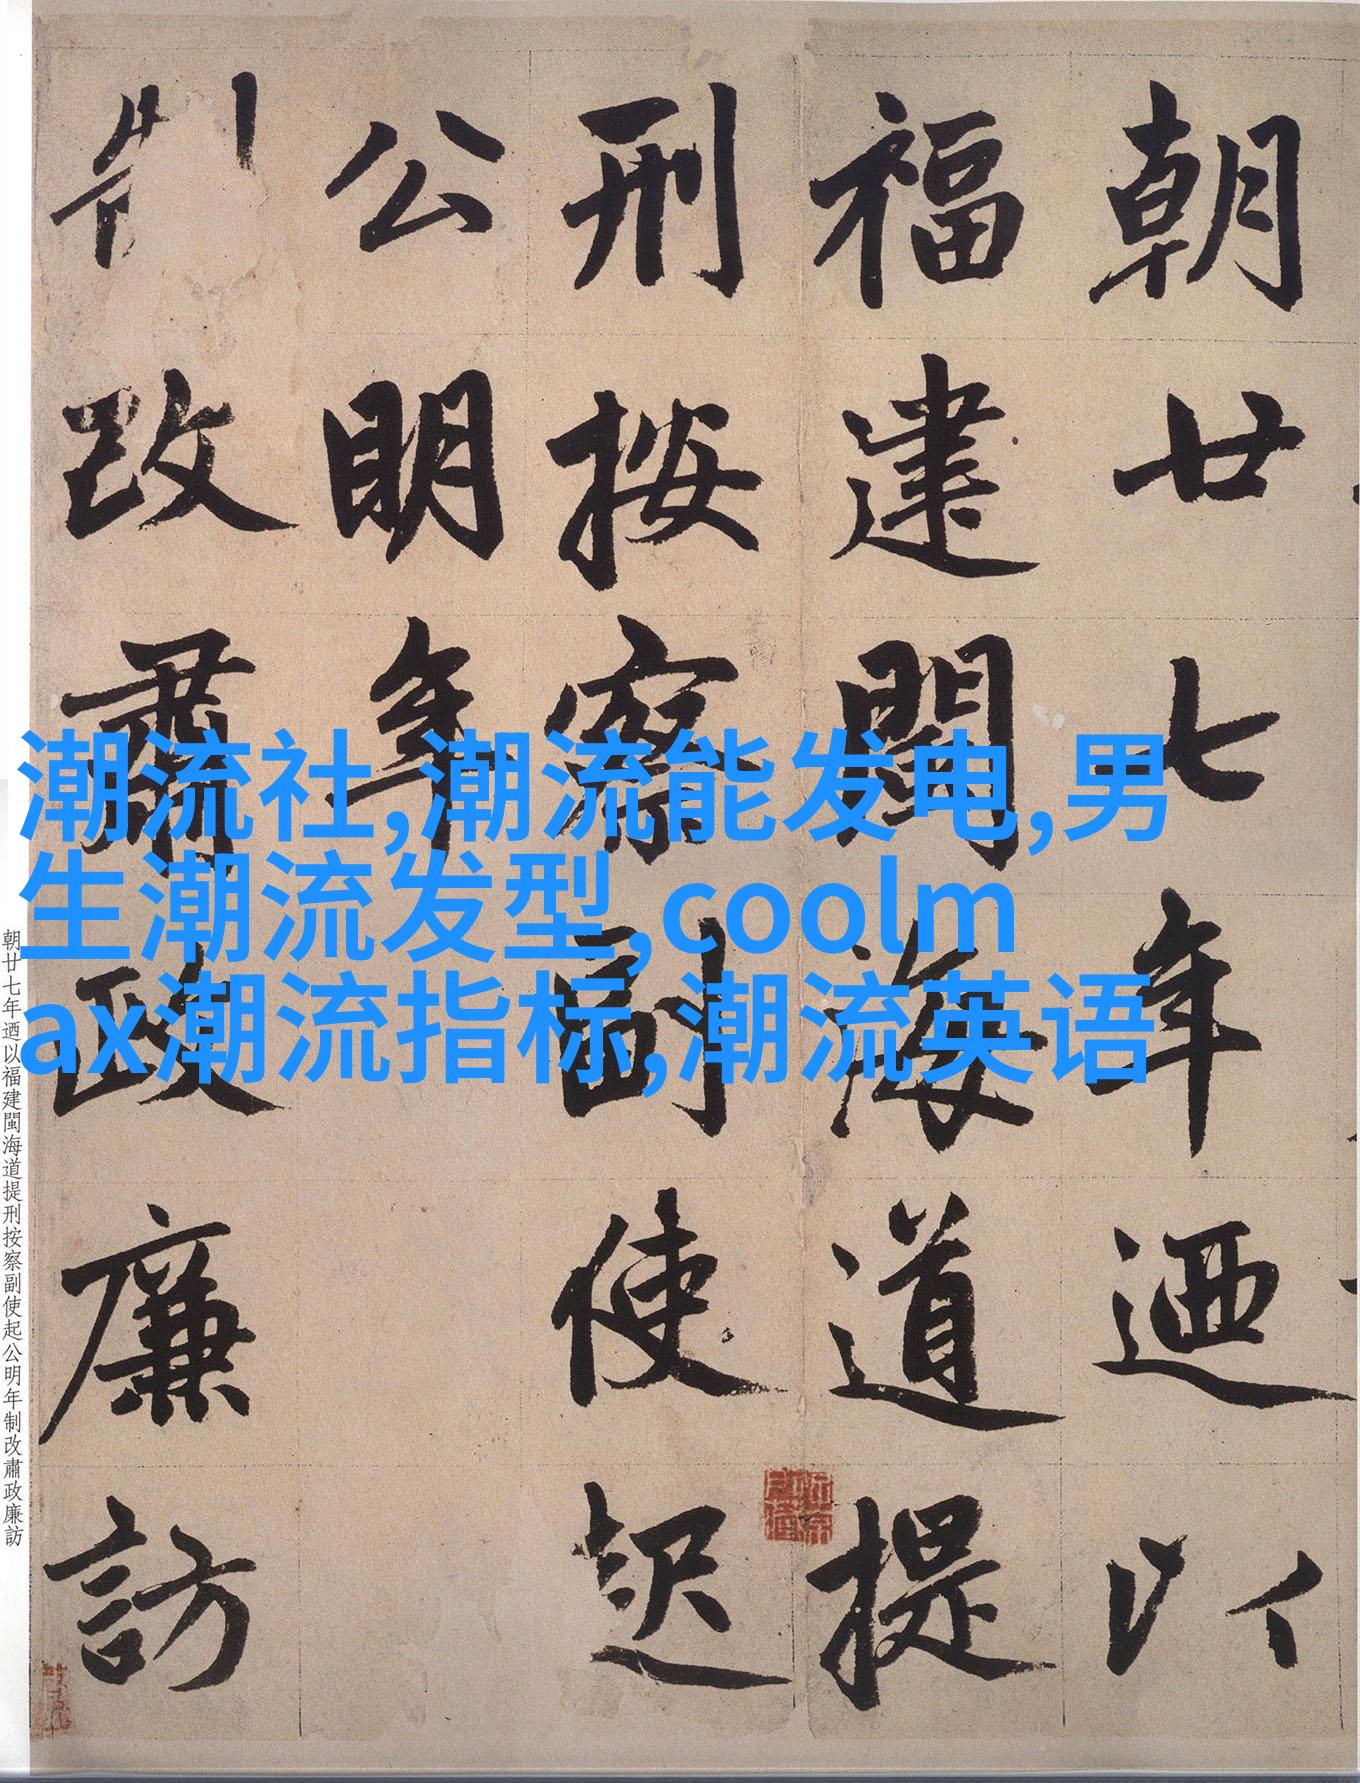 朝廿七年迺以
福建閩海道提
刑按察副使起
公明年
制改肅政廉訪
潮流社,潮流能发电,男
生潮流发型,coolm
ax潮流指标,潮流英语
朝廿七年迺以福建閩海道提刑按察副使起公明年制改肅政廉訪